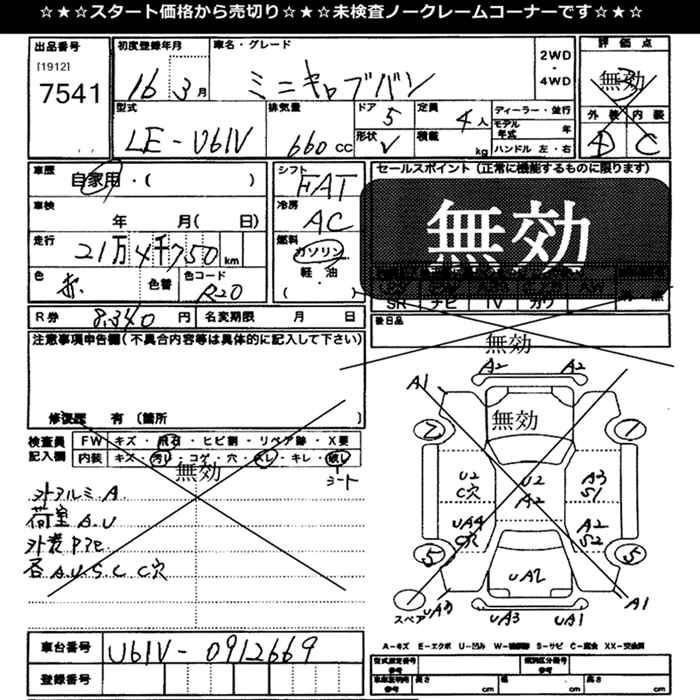 ☆★☆スタート価格から売切り☆★☆未検査ノークレームコーナーです☆★☆
出品番号
[1912]
7541
初度登録年月
16 3月
車名・グレード
ミニキャブバン
2WD
・
4WD
評価点
無効
外装 内装
D C
型式
LE-U61V
排気量
660cc
ドア 5
形状 V
定員 4人
積載 kg
ディーラー・並行
モデル年式 年
ハンドル 左・右
車歴
自家用・( )
車検
年 月( 日)
走行
21万4千750km
色
赤
色替
色コード
R20
シフト
FAT
冷房
AC
燃料
ガソリン
軽・油
( )
セールスポイント(正常に機能するものに限ります)
無効
SR ナビ TV カワ
R券 8,340円
名変期限 月 日
後日品
無効
注意事項申告欄(不具合内容等は具体的に記入して下さい)
修復歴 有 (箇所 )
検査員
記入欄
FW キズ・飛石・ヒビ割・リペア跡・X要
内装 キズ・汚れ・コゲ・穴・スレ・キレ・破レ
シート
無効
外アルミ.A.
荷室A.U
外装P.ﾊｹﾞ.
各A.U.S.C C穴
A2 A2
A1
無効
7 1
U2
C穴
U2
A2
A3
S1
UA4
C穴
A2
S2
5 5
UA2
スペア
UA3 UA3 UA1 A1
A-キズ E-エクボ U-凹み W-補修跡 S-サビ C-腐食 XX-交換済
車台番号
U61V-0912669
登録番号
型式指定番号
類別区分番号
長さ cm 幅 cm 高さ cm